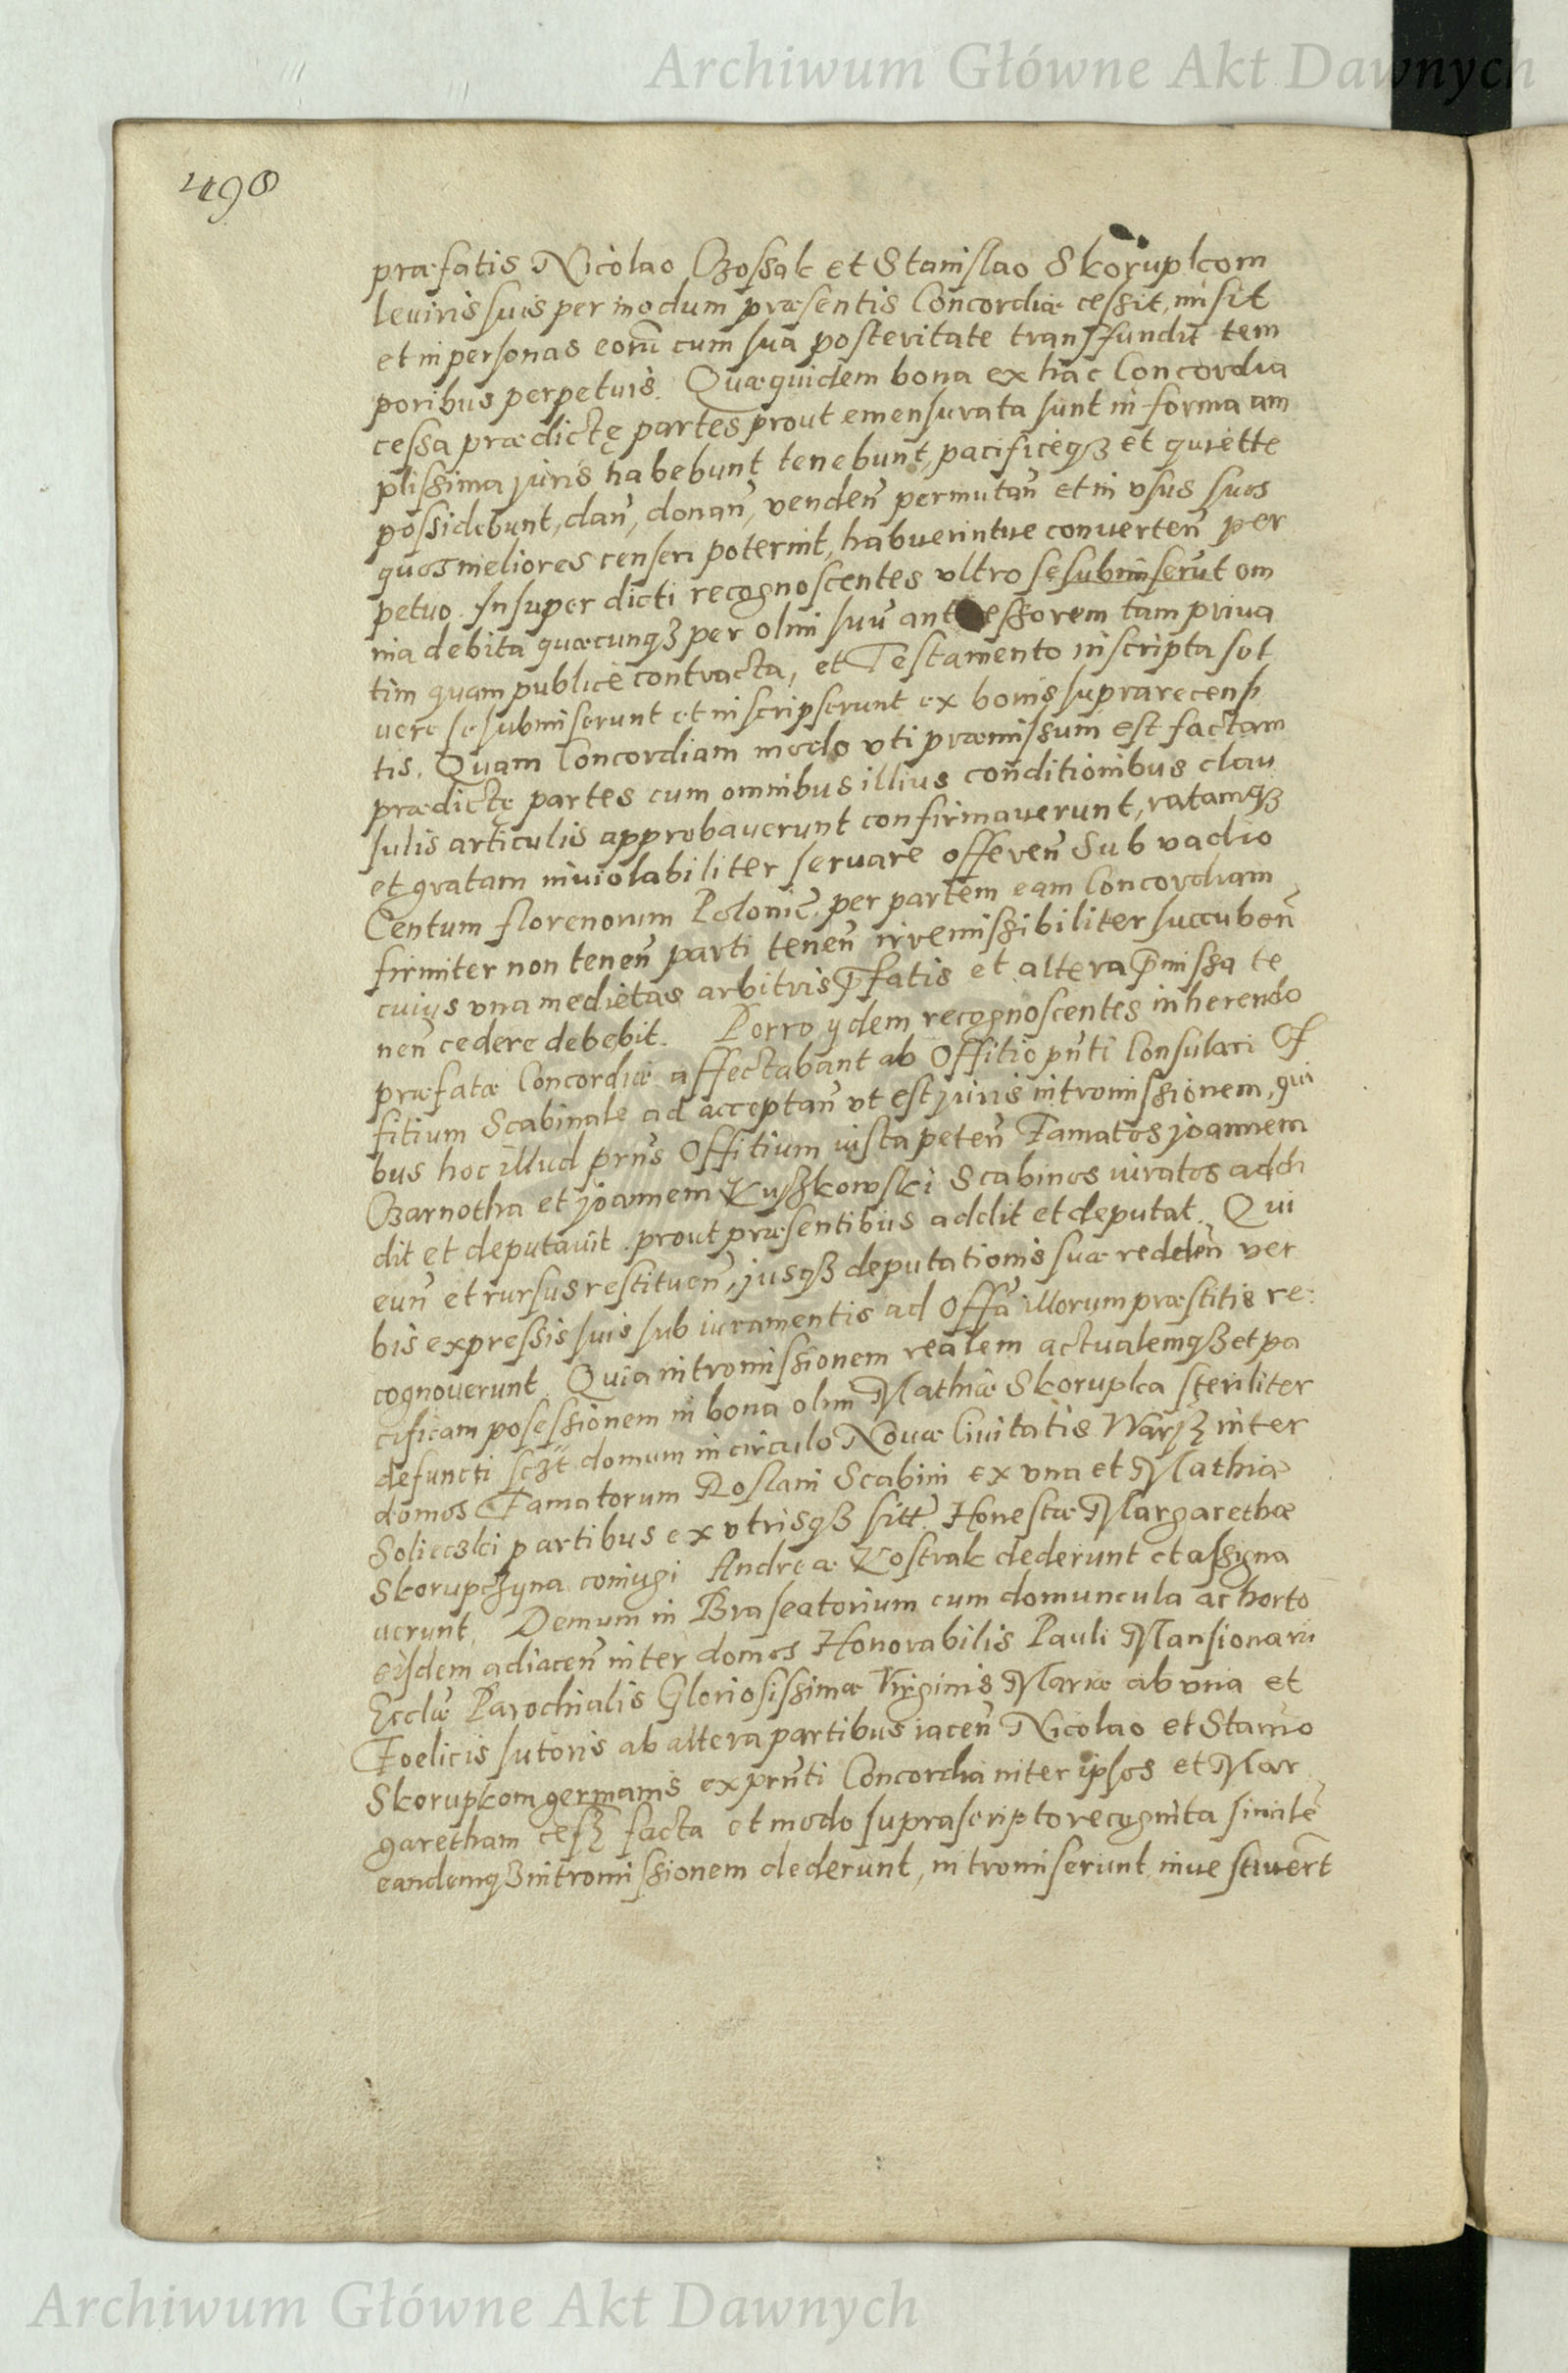 Archiwum Główne Akt Dawnych
498
præfatis Nicolao Czossak et Stanislao Skorupkom
leuiris suis per modum præsentis Concordiæ cessit, misit
et in personas eorũ cum sua posteritate transffundit tem
poribus perpetuis. Quæ quidem bona ex hac Concordia
cessa prædictę partes prout emensurata sunt in forma am
plissima juris habebunt tenebunt, pacificeqȝ et quiette
possidebunt, dañ, donañ, vendeñ permutañ et in vsus suos
quos meliores censeri poterint, habuerintue converteñ per
petuo. Insuper dicti recognoscentes vltro se submiserũt om
nia debita quæcunqȝ per olim suũ ant essorem tam priua
tim quam publicè contracta, et Testamento inscripta sol
uere se submiserunt et inscripserunt ex bonis suprarecensi
tis. Quam Concordiam modo vti præmissum est factam
prædictę partes cum omnibus illius conditionibus clau
sulis articulis approbauerunt confirmauerunt, ratamqȝ
et gratam inuiolabiliter seruare offereñ Sub vadio
Centum florenorum Polonic̃. per partem eam Concordiam
firmiter non teneñ parti teneñ irremissibiliter succubeñ
cuius vna medietas arbitris p̃fatis et altera p̃missa te
neñ cedere debebit. Porro ÿdem recognoscentes inherendo
præfatæ Concordiæ affectabant ab Offitio pñti Consulari Of
fitium Scabinale ad acceptañ vt est juris intromissionem, qui
bus hoc illud prñs Offitium iusta peteñ Famatos joannem
Czarnotha et joannem Kyszkowski Scabinos iuratos addi
dit et deputauit prout præsentibus addit et deputat. Qui
euñ et rursus restitueñ, jusqȝ deputationis suæ reddeñ ver
bis expressis suis sub iuramentis ad Offã illorum præstitis re:
cognouerunt. Quia intromissionem realem actualemqȝ et pa
cificam posessionem in bona olim Mathiæ Skorupka steriliter
defuncti sczt̃ domum in circulo Nouæ Ciuitatis Warsȝ inter
domos Famatorum Roslani Scabini ex vna et Mathia
Solieczki partibus ex vtrisqȝ sitt̃. Honestæ Margarethæ
Skorupczyna coniugi Andreæ Kostrak dederunt et assigna
uerunt. Demum in Braseatorium cum domuncula ac horto
eisdem adiaceñ inter domos Honorabilis Pauli Mansionarii
Ecclæ̃ Parochialis Gloriosissimæ Virginis Mariæ ab vna et
Foelicis sutoris ab altera partibus iaceñ Nicolao et Stanño
Skorupkom germanis ex pñti Concordia inter ipsos et Mar
garetham cesȝ facta et modo suprascripto recognita similẽ
eandemqȝ intromissionem dederunt, intromiserunt inuestiuert̃
Archiwum Główne Akt Dawnych